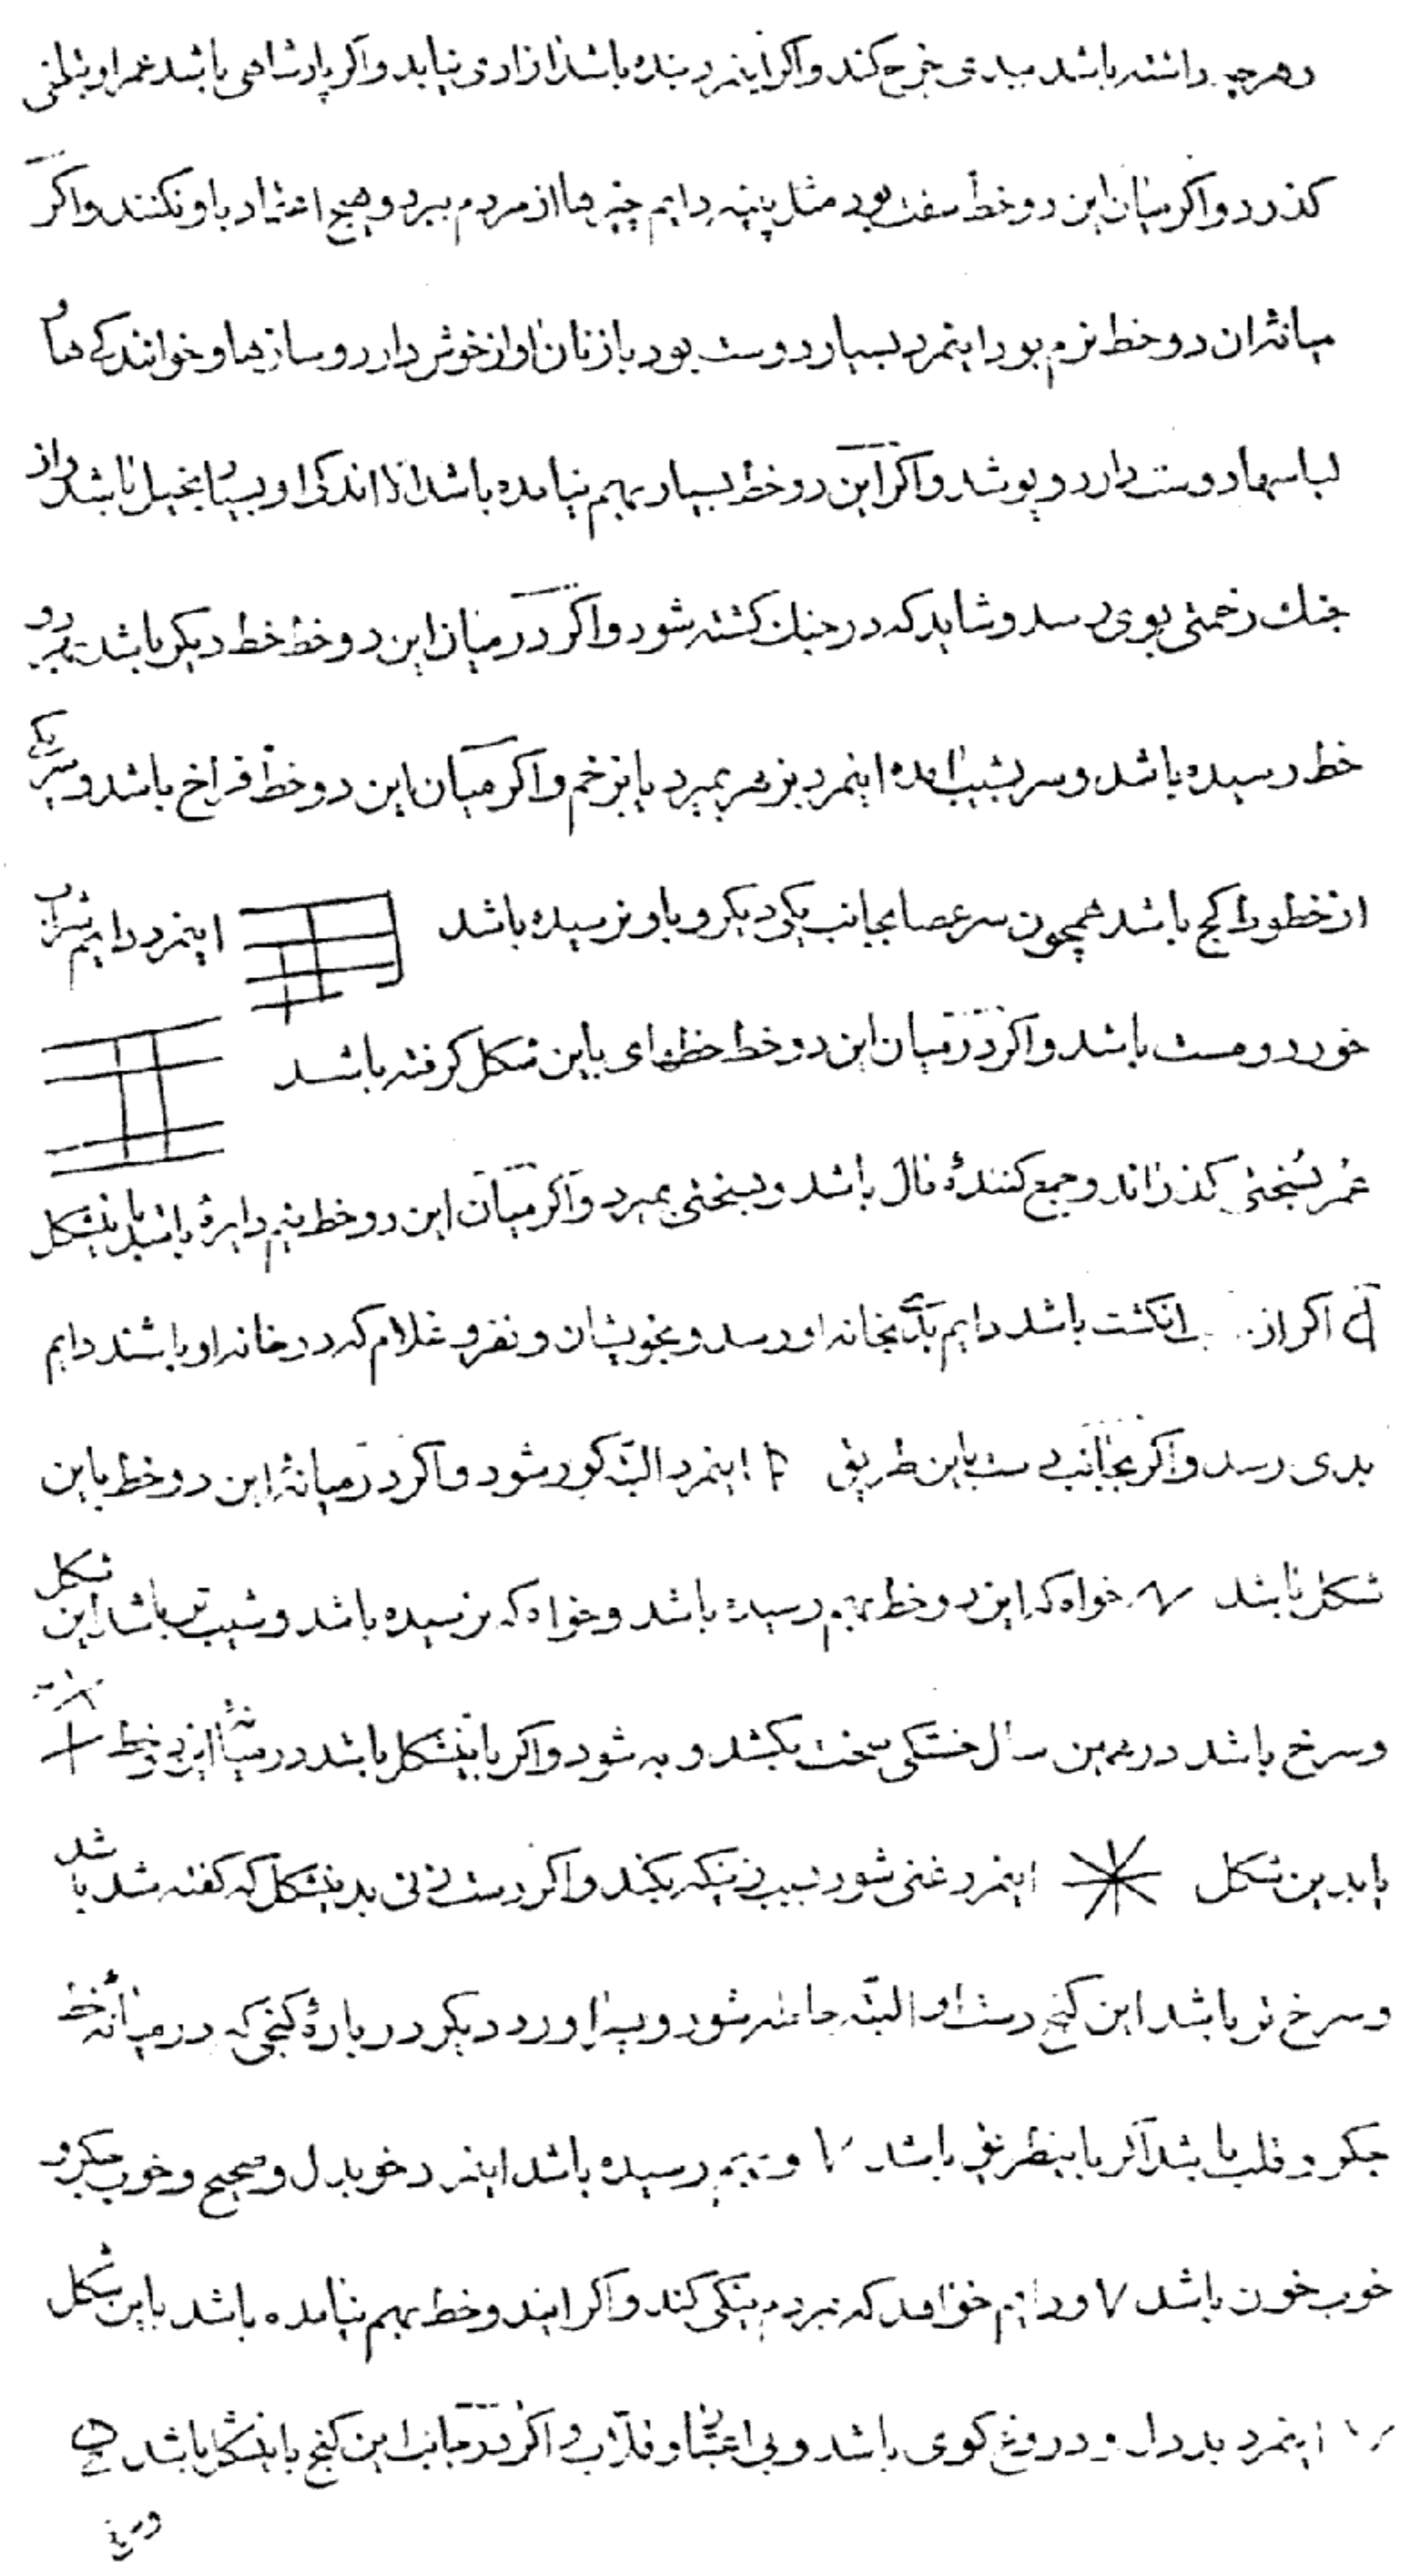 و هرچه داشته باشد ببدی خرج کند و اکر اینمرد بنده باشد ازادی نیابد و اکر پادشاهی باشد عمر او بتلخی
کذرد و اکر میان این دو خط سفت بود مثل پنبه دایم چیزها از مردم ببرد و هیچ اعتماد باو نکنند و اکر
میانۀ ان دو خط نرم بود اینمرد بسیار دوست بود با زنان و اواز خوش دارد و سازها و خوانندکی ها و
لباسها دوست دارد و پوشد و اکر این دو خط بسیار بهم نیامده باشد الا اندکی او بسیار بخیل باشد و از
جنك زخمی بوی رسد و شاید که در جنك کشته شود و اکر در میان این دو خط خط دیکر باشد
خط رسیده باشد و سر بشیب امده اینمرد بزهر بمیرد یا بزخم و اکر میان این دو خط فراخ باشد و سر یکی
از خطوط کج باشد همچون سر عصا بجانب یکی دیکر و باو نرسیده باشد اینمرد دایم شراب
خورد و مست باشد و اکر در میان این دو خط خطهای باین شکل کرفته باشد
عمر بسختی کذراند و جمع کنندۀ مال باشد و بسختی بمیرد و اکر میان این دو خط نیم دایرۀ باشد باینشکل
اکر از انکشت باشد دایم بدی بخانه او رسد و بخویشان و نفر و غلام که در خانه او باشند دایم
بدی رسد و اکر بجانب دست باین طریق اینمرد البته کور شود و اکر در میانۀ این دو خط باین
شکل باشد خواه که این دو خط بهم رسیده باشد و خواه که نرسیده باشد و شیب تر باشد این شکل
و سرخ باشد در همین سال خستکی سخت بکشد و به شود و اکر باینشکل باشد در میانۀ این دو خط
یا بدین شکل اینمرد غنی شود بسبب زنی که بکند و اکر دست زنی بدینشکل که کفته شد باشد
و سرخ تر باشد این کنج دست او البته حامله شود و پسر اورد دیکر در بارۀ کنجی که در میانۀ خط
جکر و قلب باشد اکر باینطریق باشد و بهم رسیده باشد اینمرد خوبدل و صحیح و خوب جکر و
خوب خون باشد و دایم خواهد که بمردم نیکی کند و اکر ایندو خط بهم نیامده باشد باین شکل
اینمرد بد دل و دروغ کوی باشد و بی اعتبار و قلاب و اکر در جانب این کنج باینشکل باشد